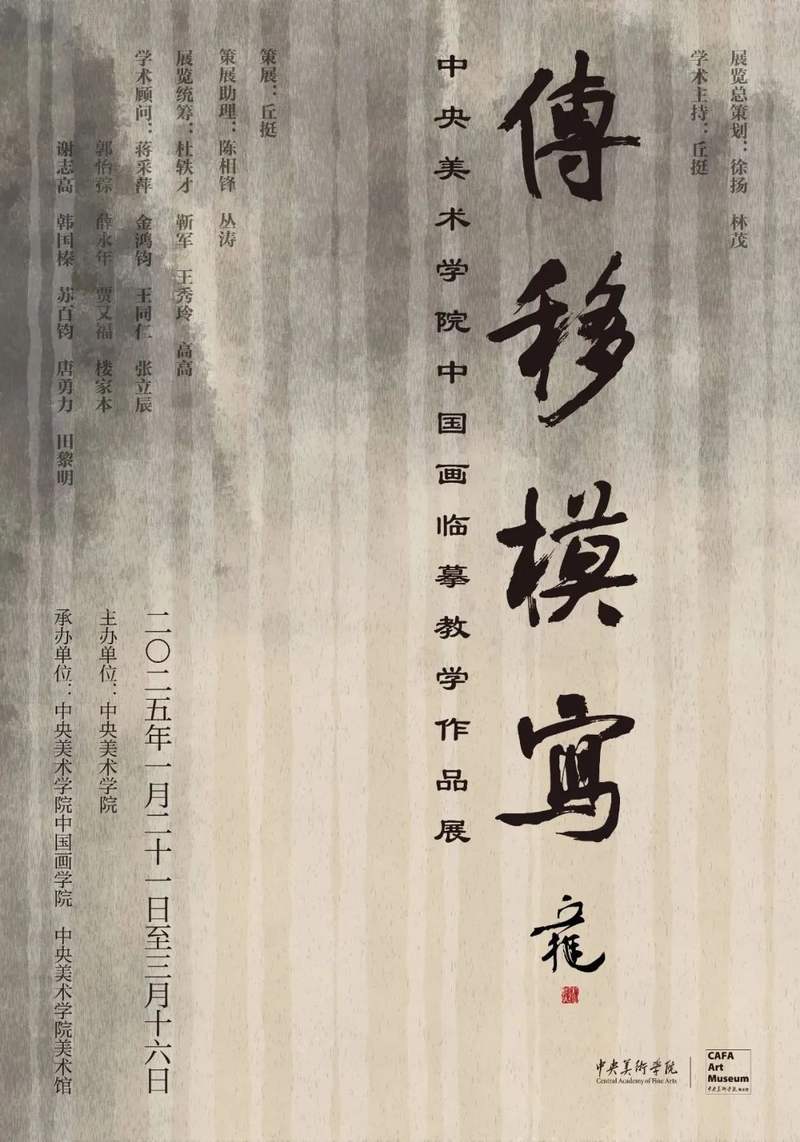 展览总策划：徐扬　林茂
学术主持：丘挺
傳移模寫
中央美术学院中国画临摹教学作品展
策展：丘挺
策展助理：陈相锋　丛涛
展览统筹：杜轶才　靳军　王秀玲　高高
学术顾问：蒋采萍　金鸿钧　王同仁　张立辰
郭怡孮　薛永年　贾又福　楼家本
谢志高　韩国榛　苏百钧　唐勇力　田黎明
二〇二五年一月二十一日至三月十六日
主办单位：中央美术学院
承办单位：中央美术学院中国画学院　中央美术学院美术馆
中央美術学院
Central Academy of Fine Arts
CAFA
Art
Museum